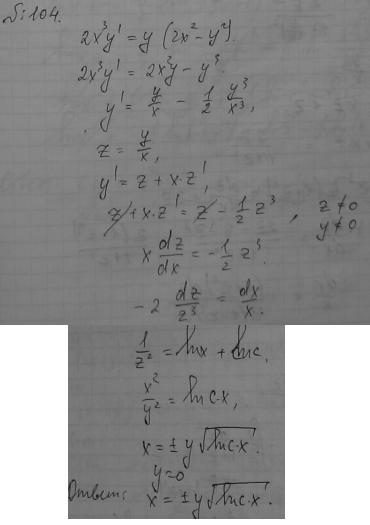 № 1104.
2x³y' = y (2x² - y²).
2x³y' = 2x²y - y³.
y' = y/x - 1/2 y³/x³,
z = y/x,
y' = z + x·z',
z + x·z' = z - 1/2 z³, z ≠ 0
y ≠ 0
x dz/dx = - 1/2 z³.
-2 dz/z³ = dx/x.
1/z² = ln x + ln c,
x²/y² = ln c·x,
x = ± y √(ln c·x).
y = 0
Ответ: x = ± y √(ln c·x).